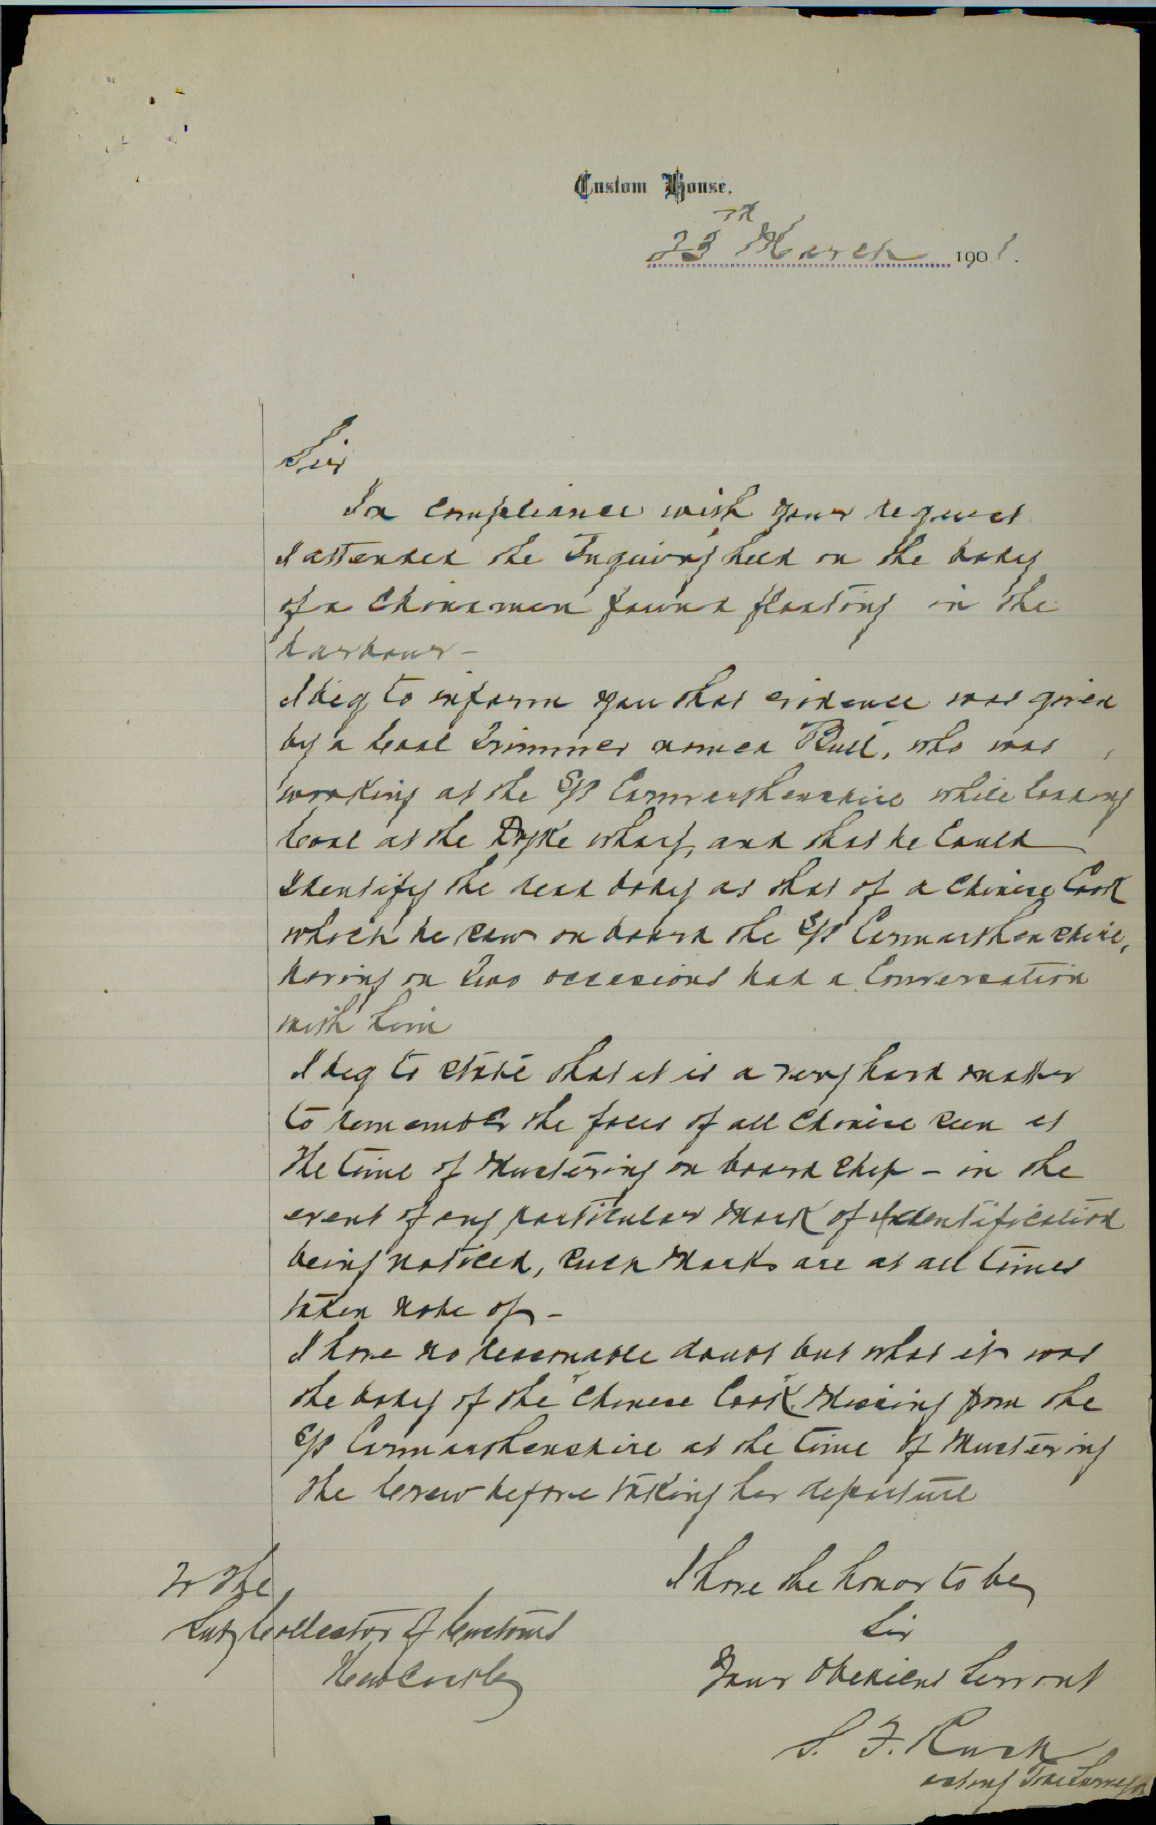 Custom House.
23rd March 1901.
Sir
In compliance with your request
I attended the Inquiry held on the body
of a Chinaman found floating in the
harbour -
I beg to inform you that evidence was given
by a Coal Trimmer named "Bull", who was
working at the S/S Carmarthenshire while loading
Coal at the Dyke wharf, and that he Could
Identify the dead body as that of a Chinese Cook
which he saw on board the S/S Carmarthenshire,
having on two occasions had a Conversation
with him
I beg to state that it is a very hard matter
to remember the faces of all Chinese seen at
the time of Mustering on board ship - in the
event of any particular Mark of Identification
being noticed, such Marks are at all times
taken Note of -
I have no reasonable doubt but what it was
the body of the "Chinese Cook" Missing from the
S/S Carmarthenshire at the time of Mustering
the Crew before taking her departure
I have the honor to be
Sir
Your Obedient Servant
S. F. Rush
acting Tide Surveyor
To the
Sub Collector of Customs
Newcastle